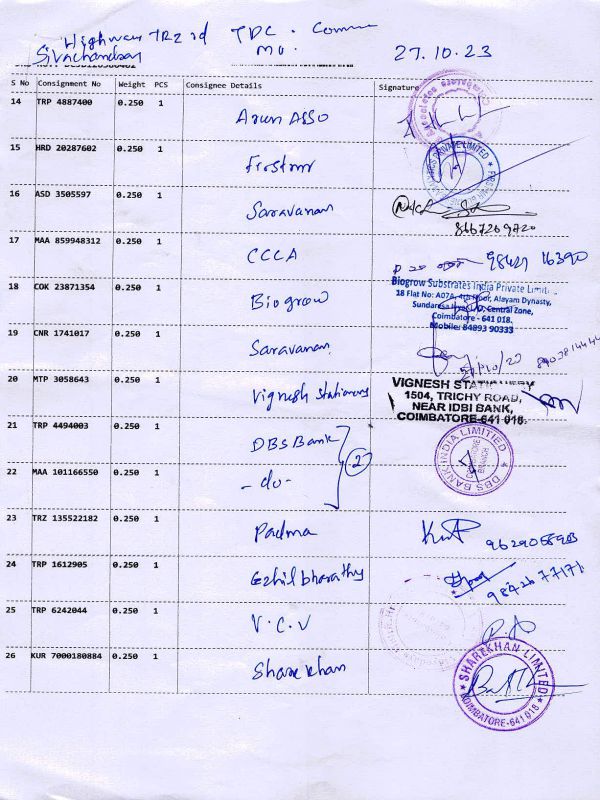 Highway TRZ rd TDC. Comm
Sivachandran mo. 27.10.23
S No Consignment No Weight PCS Consignee Details Signature
14 TRP 4887400 0.250 1 Arun Asso
15 HRD 20287602 0.250 1 Firstmr
PRIVATE LIMITED
16 ASD 3505597 0.250 1 Saravanan
8667269720
17 MAA 859948312 0.250 1 CCCA 98429 16390
18 COK 23871354 0.250 1 Biogrow
Biogrow Substrates India Private Limit
18 Flat No: A07A, 4th Floor, Alayam Dynasty,
Central Zone,
Coimbatore - 641 018.
Mobile: 84893 90333
19 CNR 1741017 0.250 1 Saravanan
20 MTP 3058643 0.250 1 Vignesh Stationery
VIGNESH STATIONERY
1504, TRICHY ROAD,
NEAR IDBI BANK,
COIMBATORE-641 018.
21 TRP 4494003 0.250 1 DBS Bank
DBS BANK INDIA LIMITED
COIMBATORE BRANCH
22 MAA 101166550 0.250 1 -do- 2
23 TRZ 135522182 0.250 1 Padma
24 TRP 1612905 0.250 1 Ezhilbharathy 98426 77171
25 TRP 6242044 0.250 1 V.C.V
26 KUR 7000180884 0.250 1 Share khan
SHAREKHAN LIMITED
COIMBATORE-641 018